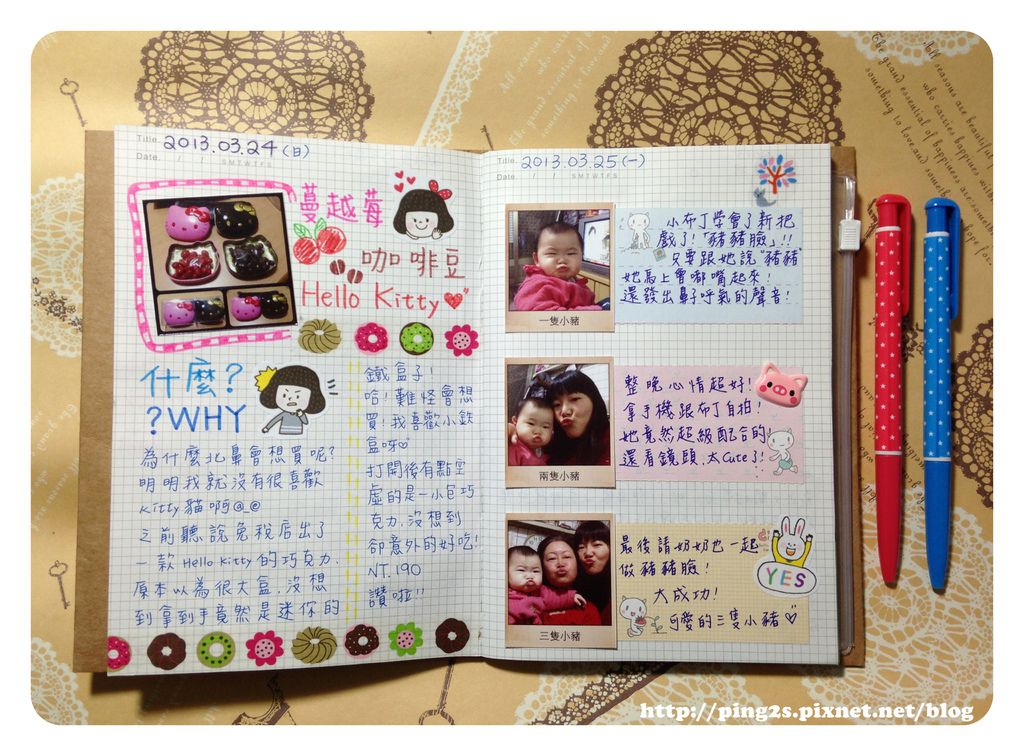 Title. 2013.03.24(日)
Date. / / S M T W T F S
蔓越莓
咖啡豆
Hello Kitty
什麼?
?WHY
為什麼北鼻會想買呢?
明明我就沒有很喜歡
Kitty貓啊@@
之前聽說免稅店出了
一款 Hello Kitty 的巧克力,
原本以為很大盒,沒想
到拿到手竟然是迷你的
鐵盒子!
哈!難怪會想
買!我喜歡小鉄
盒呀
打開後有點空
虛的是一小包巧
克力,沒想到
卻意外的好吃!
NT.190
讚啦!!
Title. 2013.03.25(一)
Date. / / S M T W T F S
小布丁學會了新把
戲了!「豬豬臉」!!
只要跟她說"豬豬"
她馬上會嘟嘴起來!
還發出鼻子呼氣的聲音!
一隻小豬
整晚心情超好!
拿手機跟布丁自拍!
她竟然超級配合的
還看鏡頭,太Cute了!
兩隻小豬
最後請奶奶也一起
做豬豬臉!
大成功!
可愛的三隻小豬
YES
三隻小豬
All seasons are beautiful
who carries happiness
The grand essential of happiness
something to love, and
http://ping2s.pixnet.net/blog